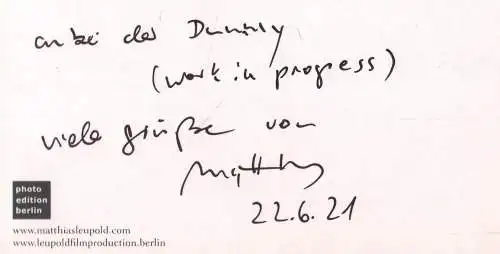 anbei das Dummy
(work in progress)
viele grüße von
Matthias
22.6.21
photo
edition
berlin
www.matthiasleupold.com
www.leupoldfilmproduction.berlin